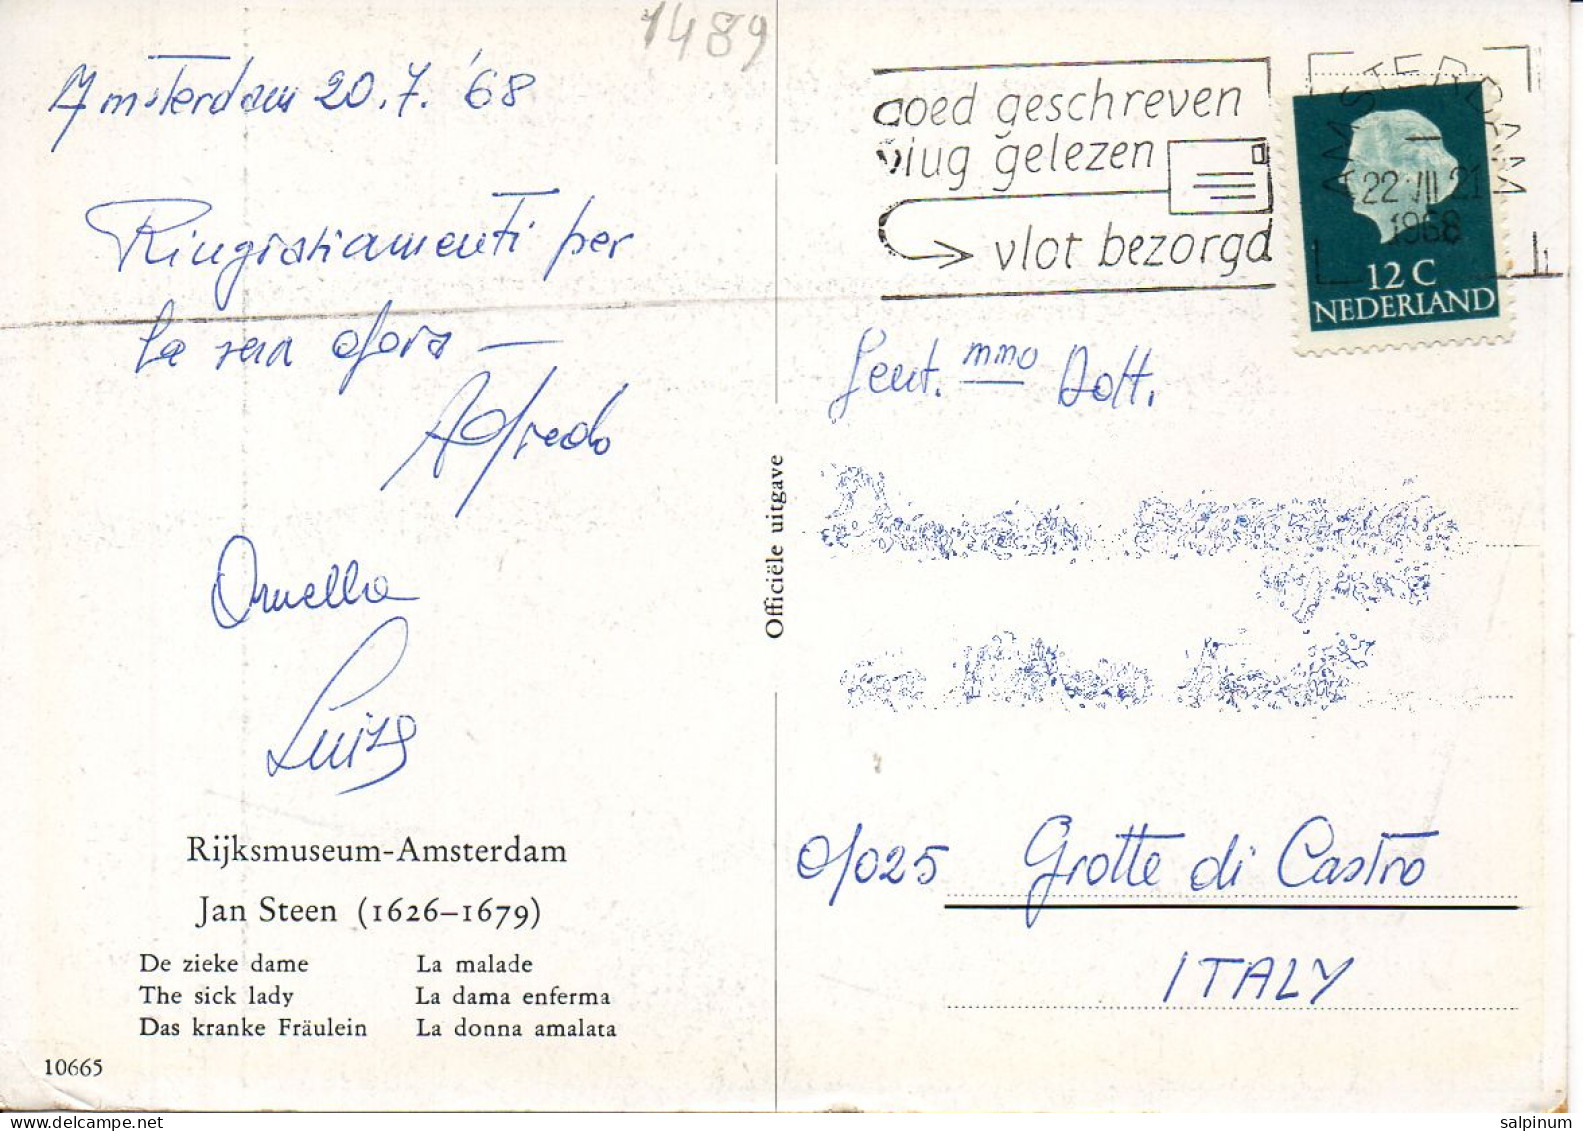 1489
Amsterdam 20.7.'68
Ringraziamenti per
la sua
Alfredo
Ornella
Luiza
Rijksmuseum-Amsterdam
Jan Steen (1626–1679)
De zieke dame
The sick lady
Das kranke Fräulein
La malade
La dama enferma
La donna amalata
10665
Officiële uitgave
goed geschreven
vlug gelezen
vlot bezorgd
AMSTERDAM
22 VII 21
1968
12 C
NEDERLAND
Gent.mmo Dott.
01025 Grotte di Castro
ITALY
salpinum